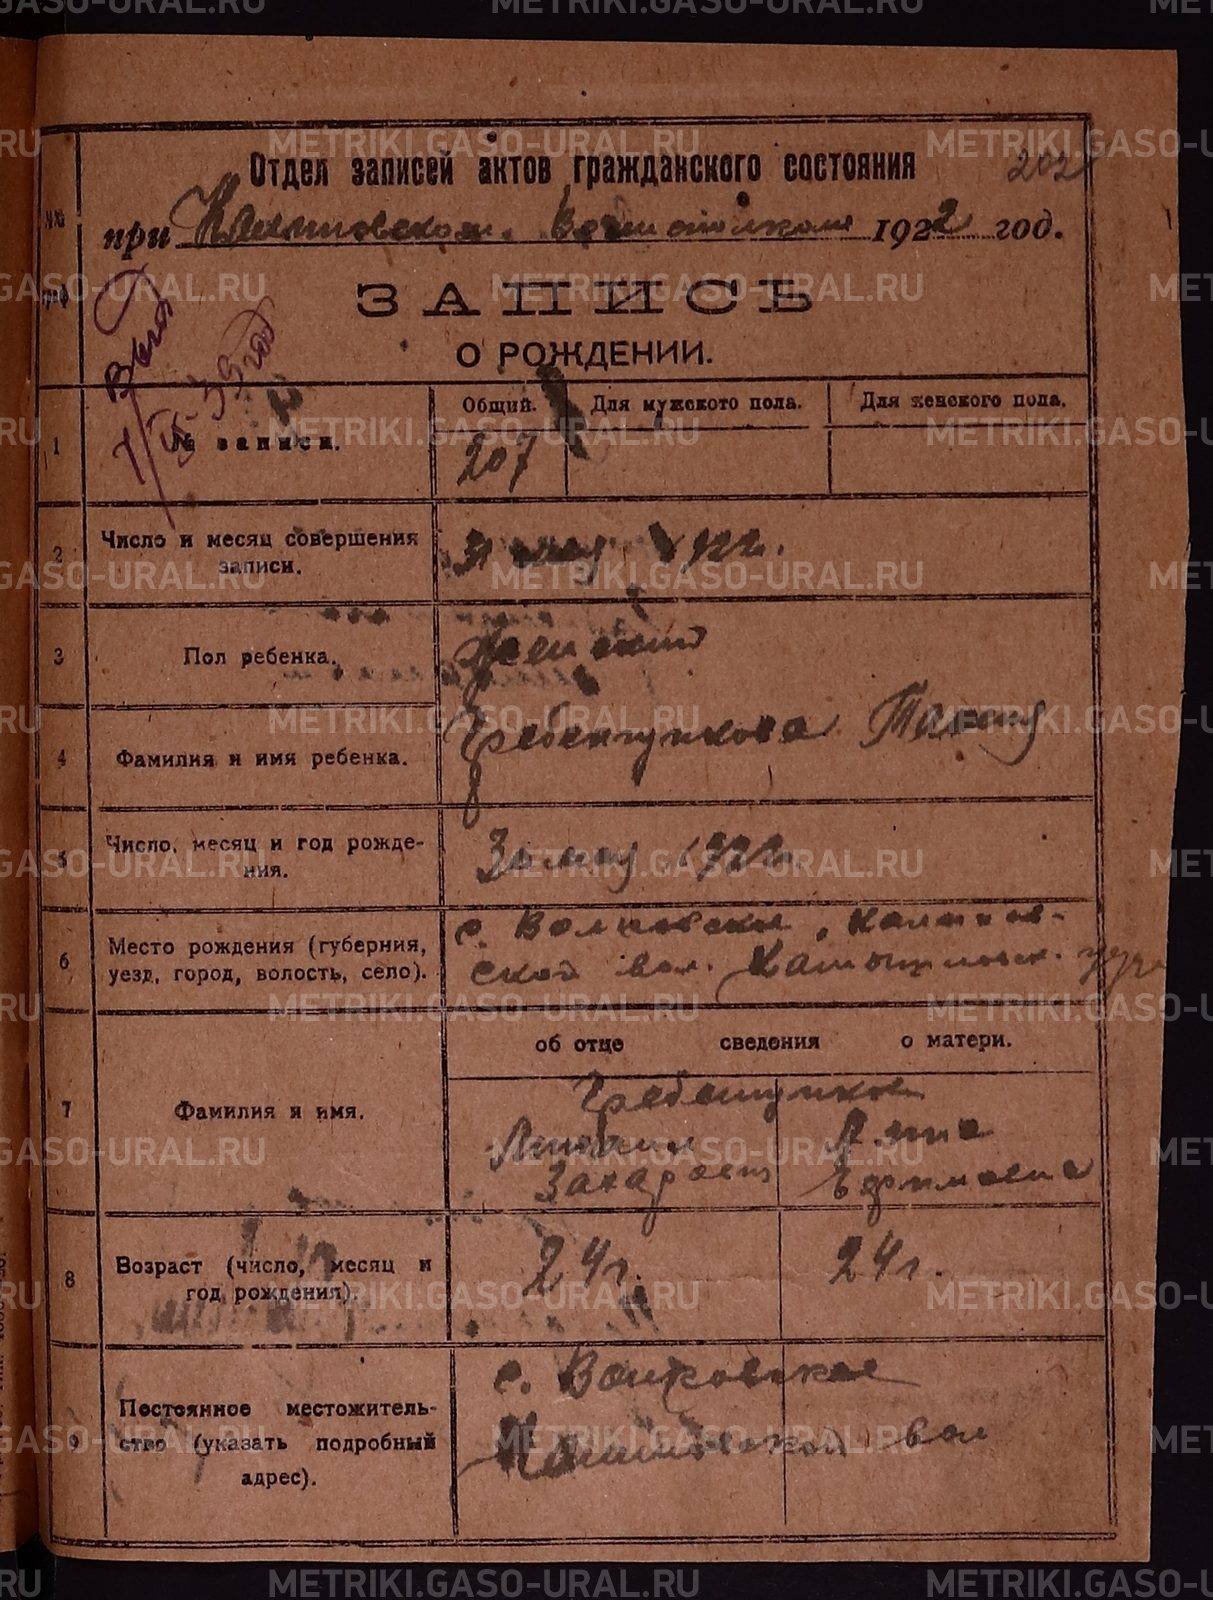 202
Отдел записей актов гражданского состояния
при Калиновском Волисполкоме 1922 год.
ЗАПИСЬ
О РОЖДЕНИИ.
Общий. Для мужского пола. Для женского пола.
1 № записи. 207
2 Число и месяц совершения записи. 31 мая 1922г.
3 Пол ребенка. Женский
4 Фамилия и имя ребенка. Гребенщикова Таисия
5 Число, месяц и год рожде-
ния. 30 мая 1922г.
6 Место рождения (губерния, с. Волковское, Калинов-
уезд, город, волость, село). ской вол. Камышловск. уез
об отце сведения о матери.
7 Фамилия и имя. Гребенщиков
Анна
Захарович Ефимовна
8 Возраст (число, месяц и 24 г. 24 г.
год рождения).
9 Постоянное местожитель- с. Волковское
ство (указать подробный Калиновской вол
адрес).
METRIKI.GASO-URAL.RU